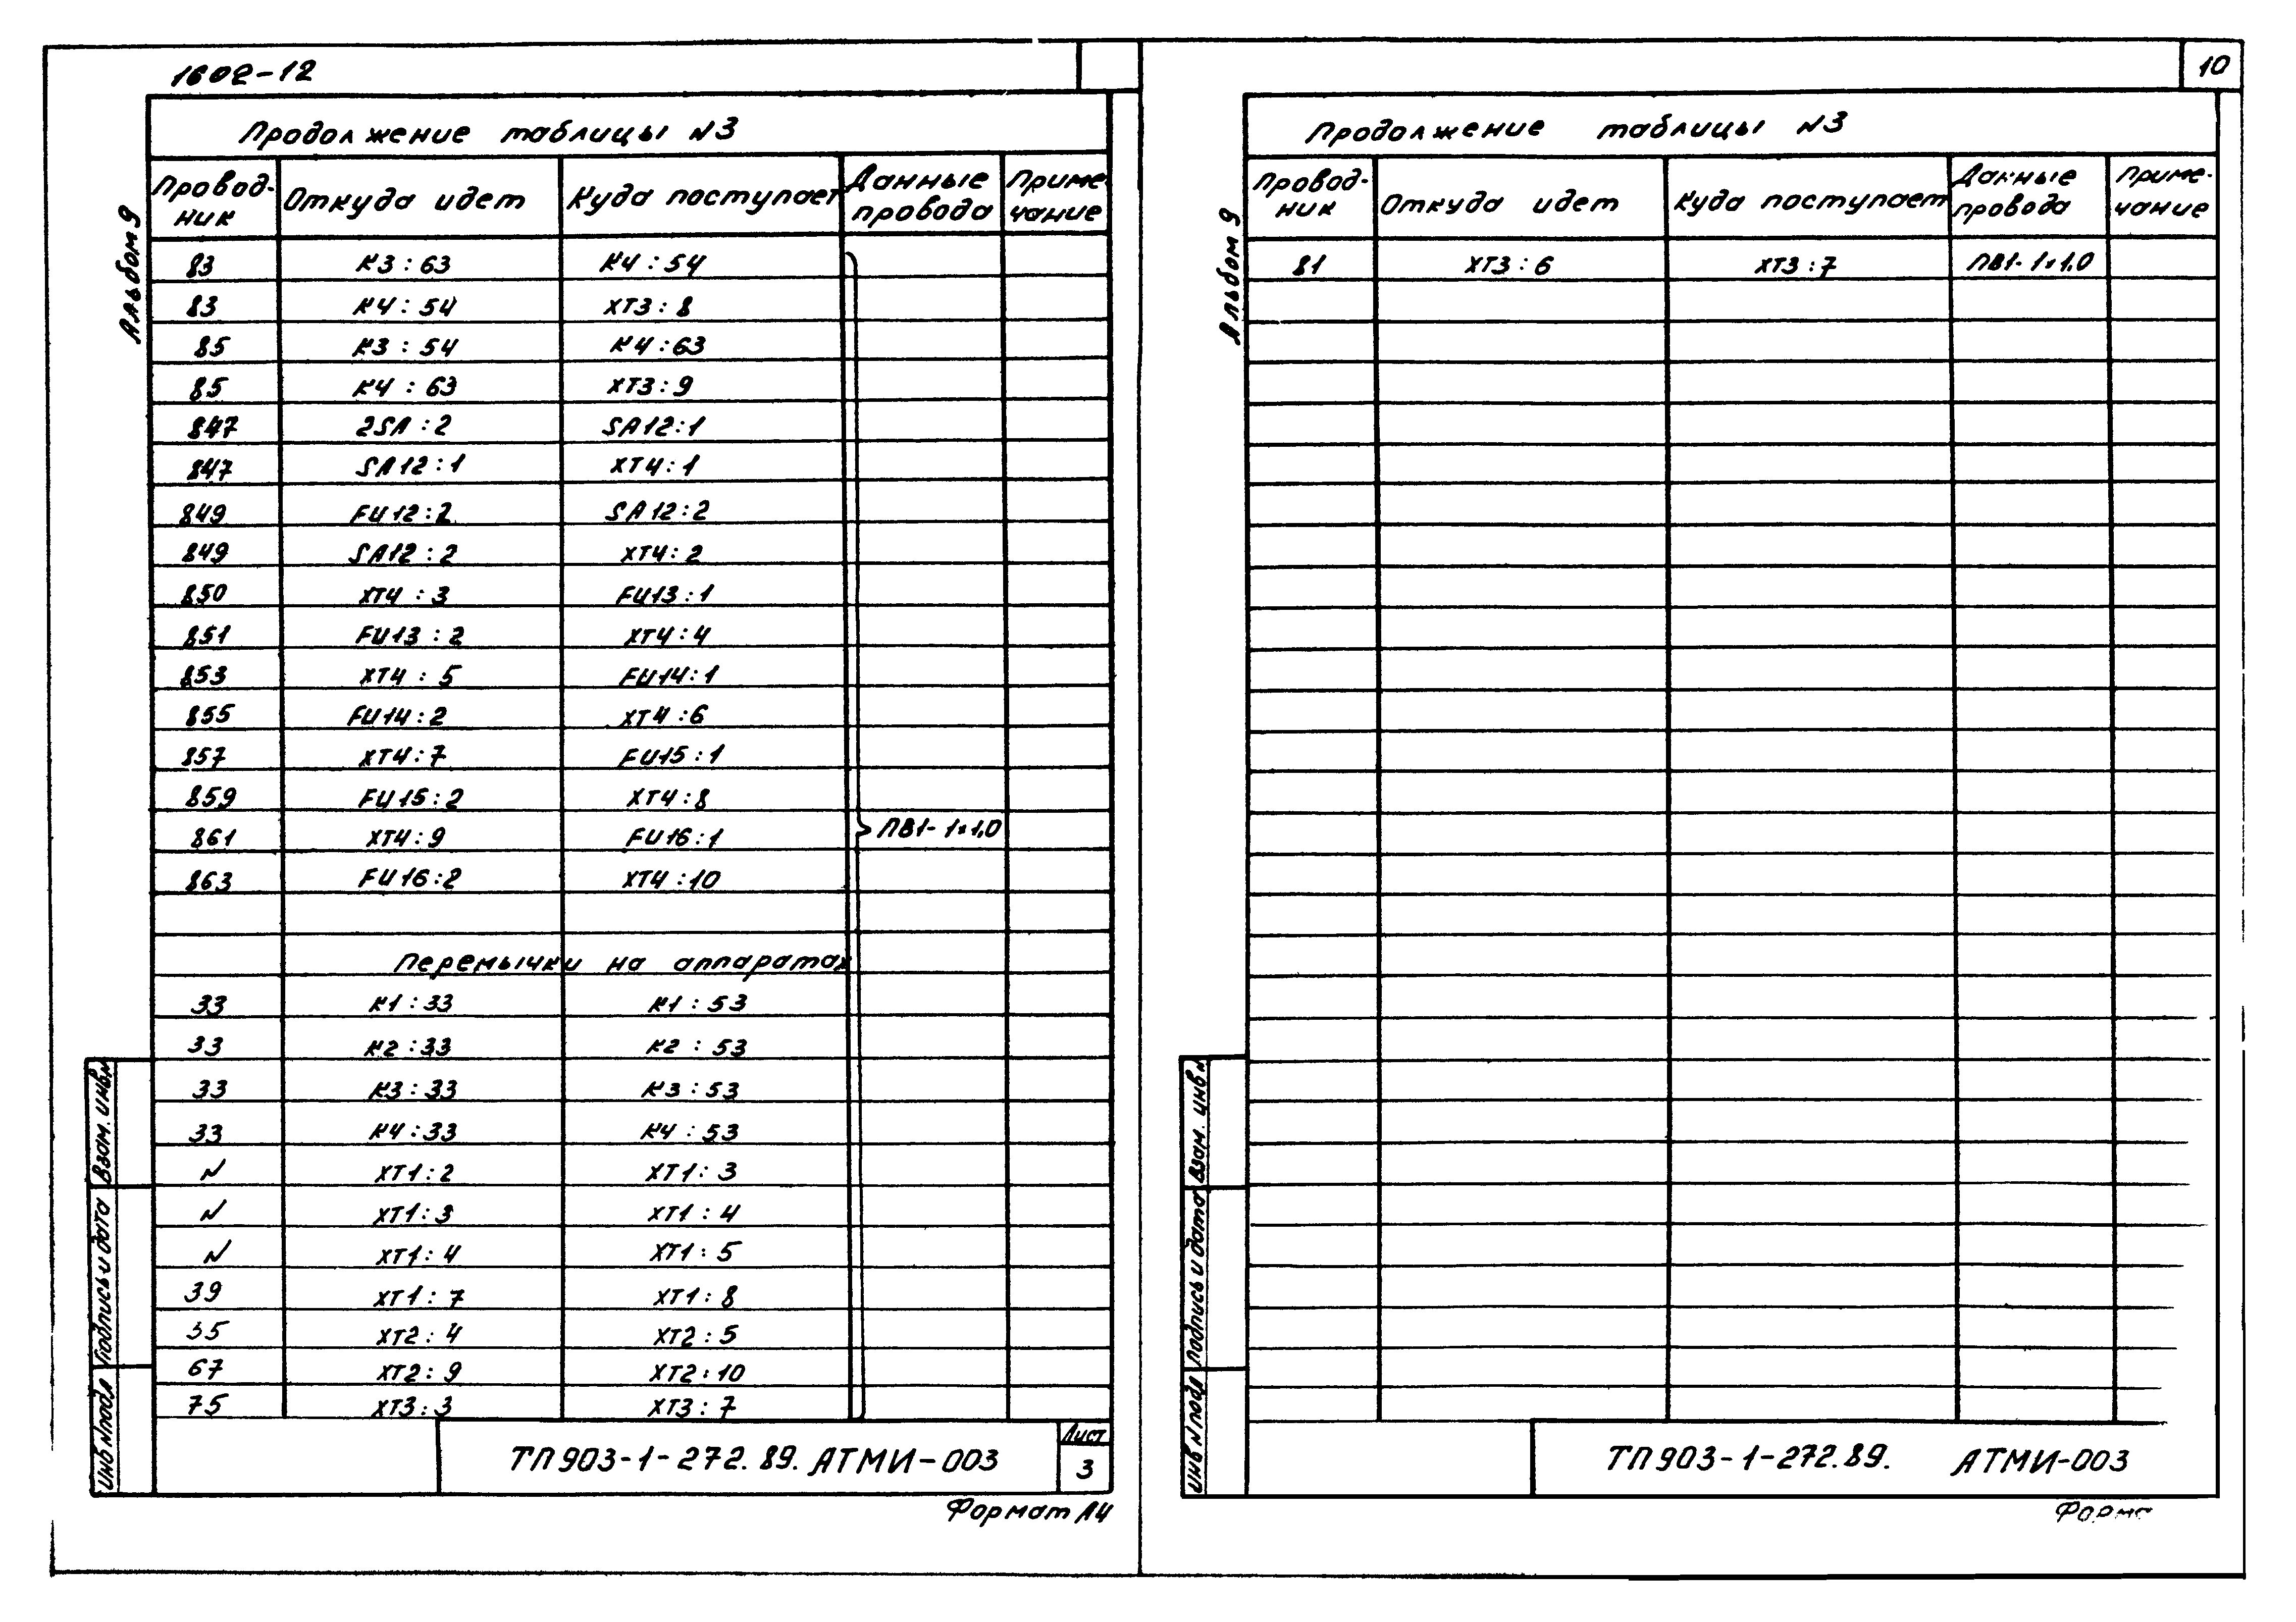 1602-12
Альбом 9
Продолжение таблицы N3
Провод-ник Откуда идет Куда поступает Данные провода Приме-чание
83 К3:63 К4:54
83 К4:54 ХТ3:8
85 К3:54 К4:63
85 К4:63 ХТ3:9
847 2SA:2 SA12:1
847 SA12:1 ХТ4:1
849 FU12:2 SA12:2
849 SA12:2 ХТ4:2
850 ХТ4:3 FU13:1
851 FU13:2 ХТ4:4
853 ХТ4:5 FU14:1
855 FU14:2 ХТ4:6
857 ХТ4:7 FU15:1
859 FU15:2 ХТ4:8
861 ХТ4:9 FU16:1 ПВ1-1×1,0
863 FU16:2 ХТ4:10
Перемычки на аппаратах
33 К1:33 К1:53
33 К2:33 К2:53
33 К3:33 К3:53
33 К4:33 К4:53
N ХТ1:2 ХТ1:3
N ХТ1:3 ХТ1:4
N ХТ1:4 ХТ1:5
39 ХТ1:7 ХТ1:8
35 ХТ2:4 ХТ2:5
67 ХТ2:9 ХТ2:10
75 ХТ3:3 ХТ3:7
Взам. инв. N
Подпись и дата
Инв N подл
ТП903-1-272.89. АТМИ-003
Лист
3
Формат А4
10
Альбом 9
Продолжение таблицы N3
Провод-ник Откуда идет Куда поступает Данные провода Приме-чание
81 ХТ3:6 ХТ3:7 ПВ1-1×1,0
Взам. инв N
Подпись и дата
Инв N подл
ТП903-1-272.89. АТМИ-003